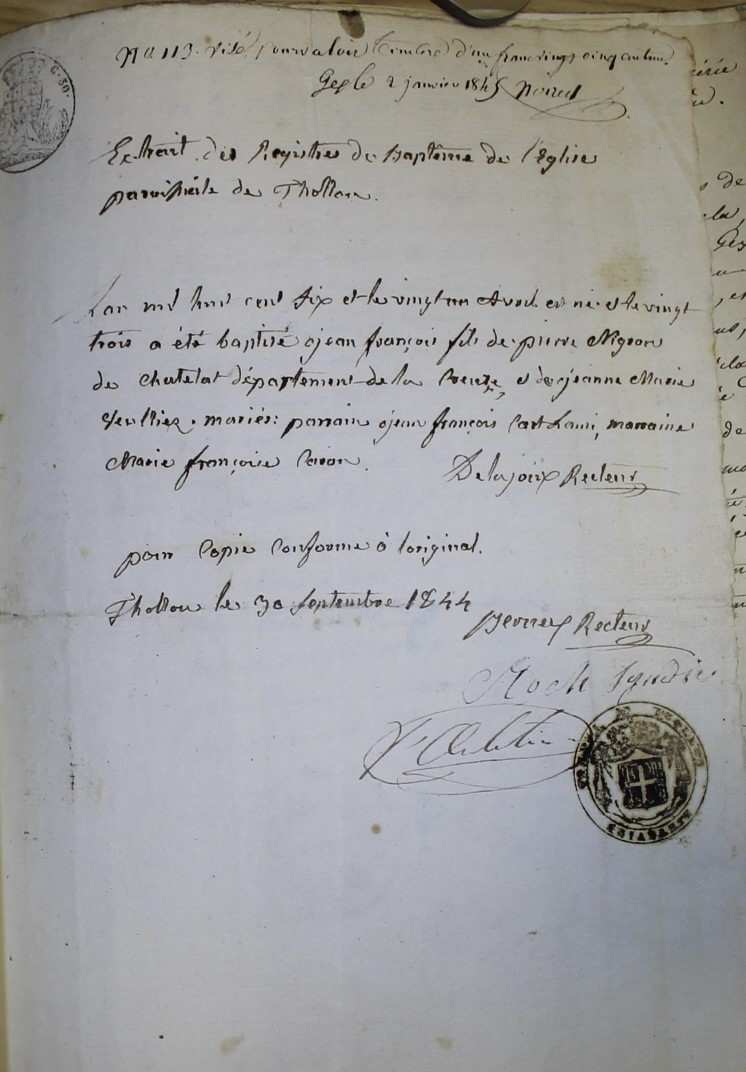 No 113. Visé pour valoir timbre d'un franc vingt cinq centimes.
Gex le 2 janvier 1845
C. 30.
Extrait des Registres de Baptême de l'Eglise
paroissiale de Thollon.
L'an mil huit cent dix et le vingt un Avril est né et le vingt
trois a été baptisé jean françois fils de pierre Mignon
de Chatelat département de la Creuze, et de jeanne Marie
Veulliez. mariés: parrain jean françois Cart Lami, marraine
Marie françoise
Delajoux Recteur
pour Copie Conforme à l'original.
Thollon le 30 Septembre 1844
Recteur
Roch Syndic